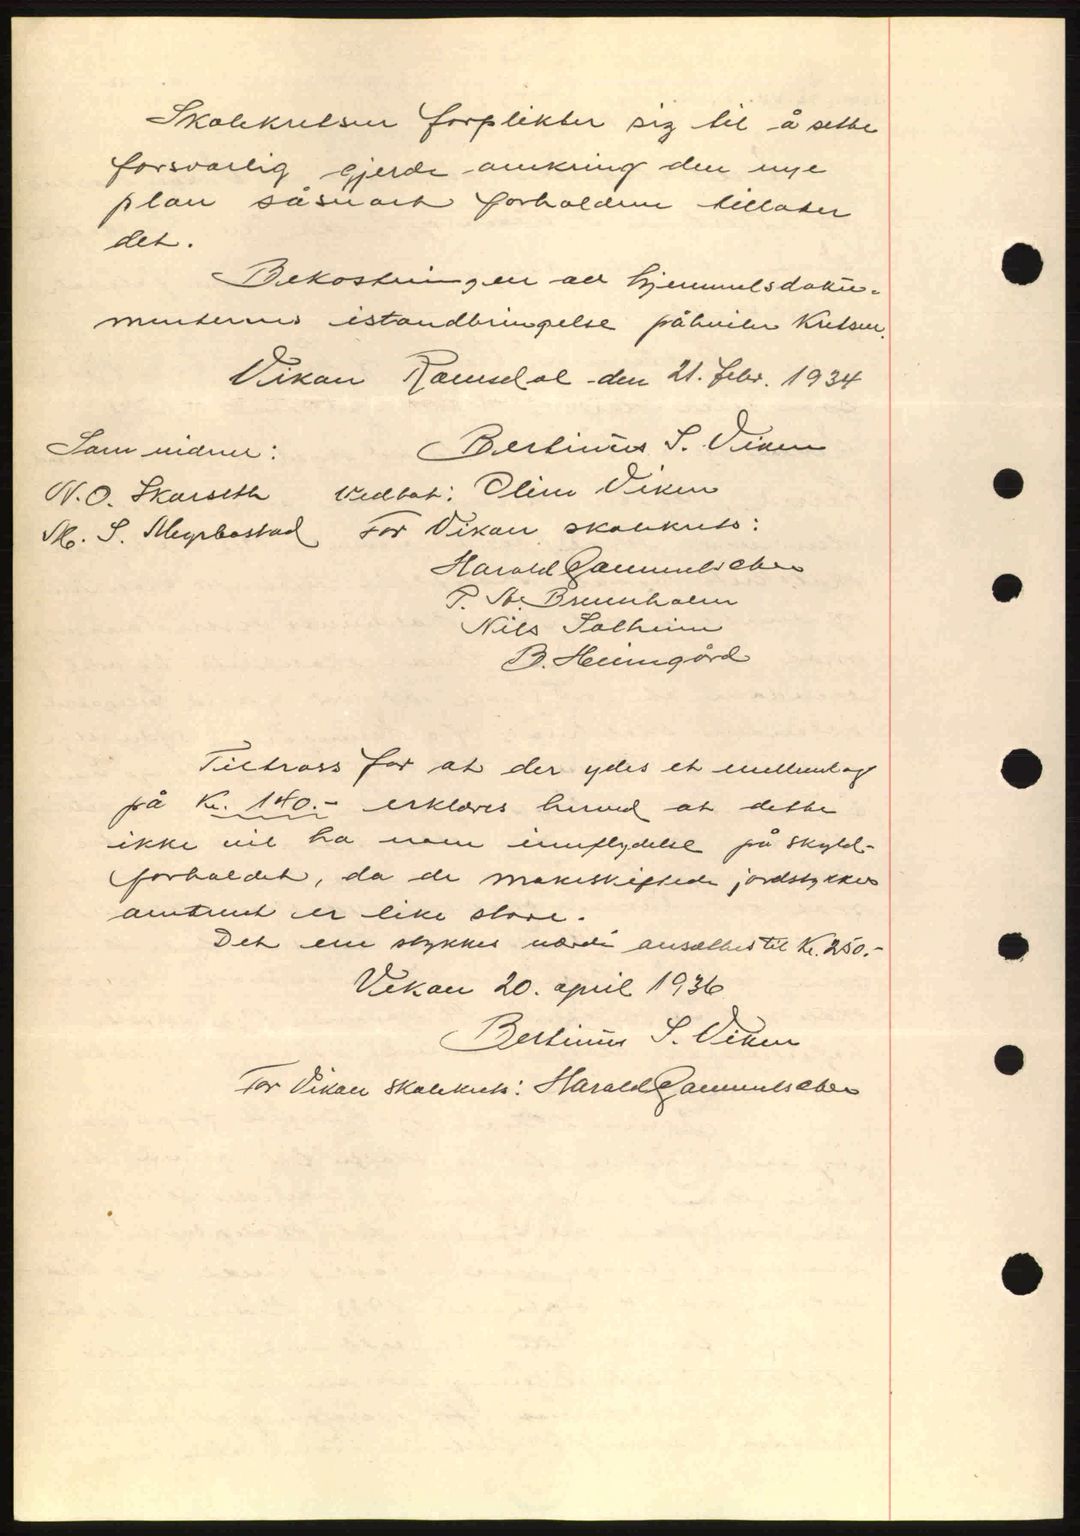 Skolekretsen forplikter sig til å sette
forsvarlig gjerde omkring den nye
plan såsnart forholdene tillater
det.
Bekostningen av hjemmelsdoku-
mentenes istandbringelse påhviler Kretsen.
Vikan Romsdal den 21. febr. 1934
Som vidner: Bertinus S. Viken
N. O. Skarseth Vedtat: Oline Viken
M. S. Myrbostad For Vikan skolekrets:
Harald Gammelsæter
P. Brunholm
Nils Solheim
B. Heimgård
Tiltross for at der ydes et mellemlag
på Kr. 140.- erklæres herved at dette
ikke vil ha noen innflydelse på skyld-
forholdet, da de makeskiftede jordstykker
omtrent er like store.
Det ene stykkes verdi ansettes til Kr. 250.-
Vikan 20. april 1936
Bertinus S. Viken
For Vikan skolekrets: Harald Gammelsæter